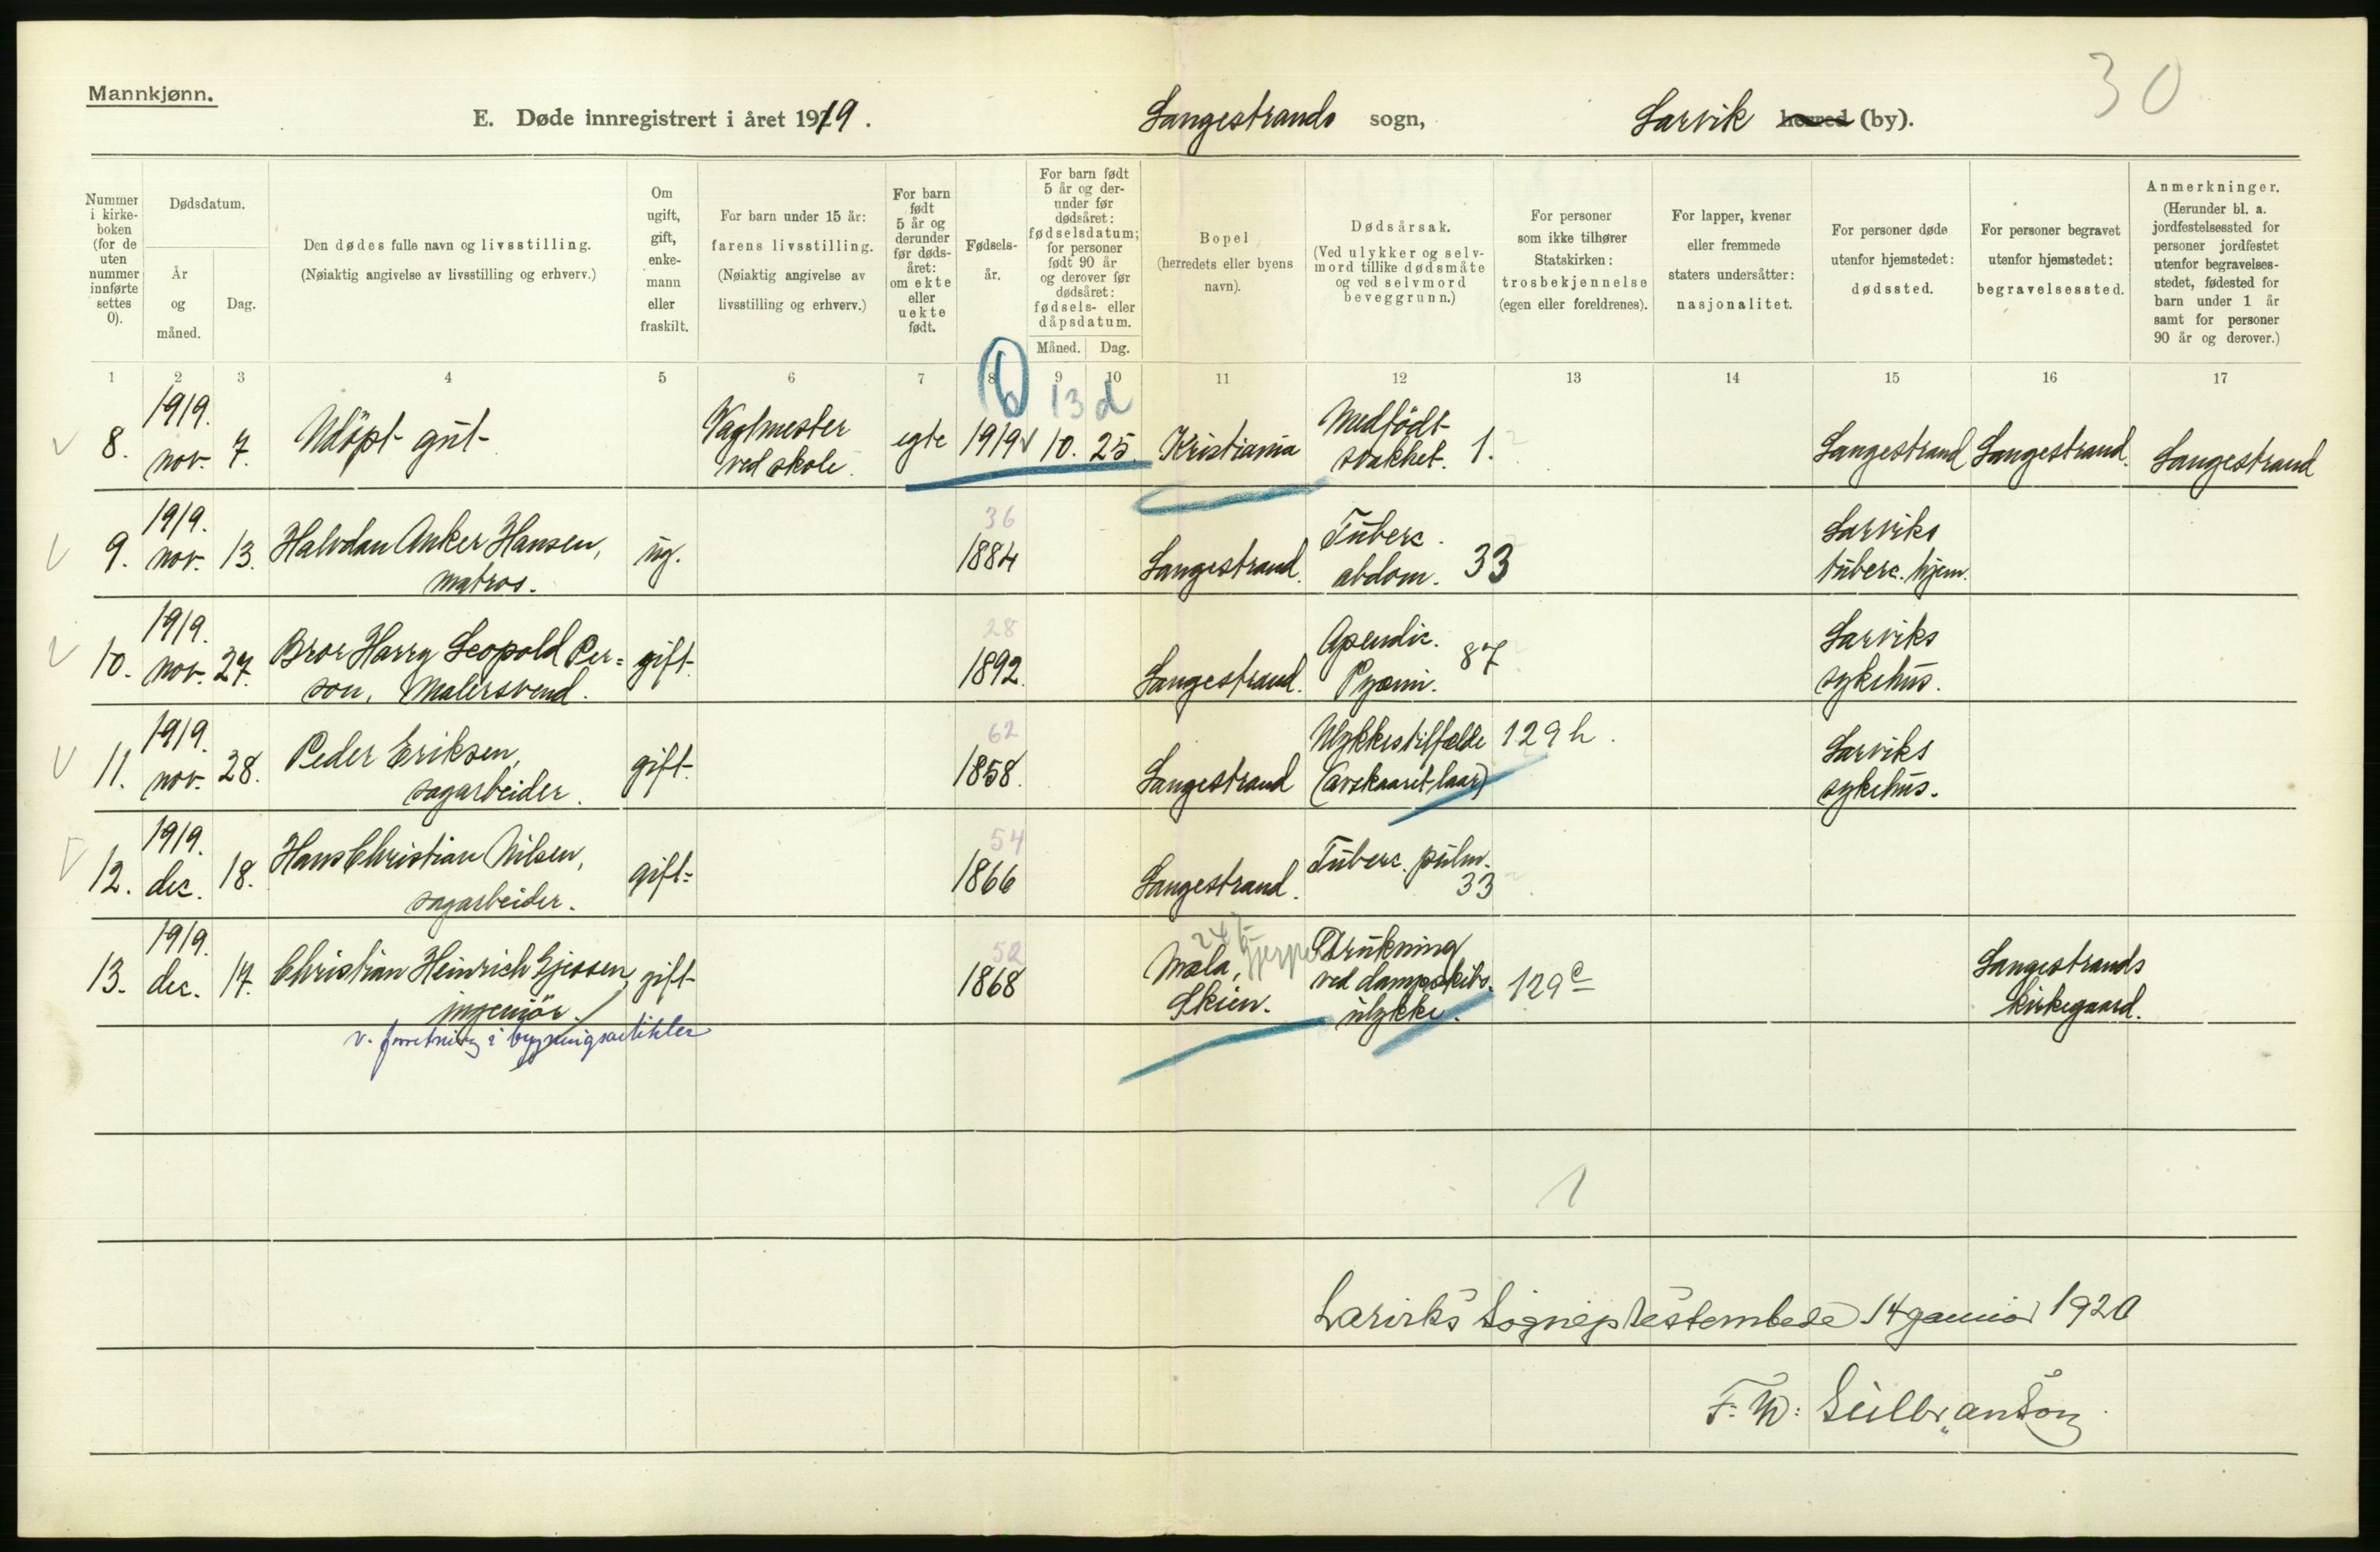 Mannkjønn.
30
E. Døde innregistrert i året 1919. Langestrands sogn, Larvik herred (by).
Nummer i kirkeboken (for de uten nummer innførte settes 0).
Dødsdatum.
År og måned.
Dag.
Den dødes fulle navn og livsstilling.
(Nøiaktig angivelse av livsstilling og erhverv.)
Om ugift, gift, enkemann eller fraskilt.
For barn under 15 år:
farens livsstilling.
(Nøiaktig angivelse av livsstilling og erhverv.)
For barn født 5 år og derunder før dødsåret: om ekte eller uekte født.
Fødselsår.
For barn født 5 år og derunder før dødsåret: fødselsdatum; for personer født 90 år og derover før dødsåret: fødsels- eller dåpsdatum.
Måned. Dag.
Bopel
(herredets eller byens navn).
Dødsårsak.
(Ved ulykker og selvmord tillike dødsmåte og ved selvmord beveggrunn.)
For personer som ikke tilhører Statskirken:
trosbekjennelse
(egen eller foreldrenes).
For lapper, kvener eller fremmede staters undersåtter:
nasjonalitet.
For personer døde utenfor hjemstedet:
dødssted.
For personer begravet utenfor hjemstedet:
begravelsessted.
Anmerkninger.
(Herunder bl. a. jordfestelsessted for personer jordfestet utenfor begravelsesstedet, fødested for barn under 1 år samt for personer 90 år og derover.)
1 2 3 4 5 6 7 8 9 10 11 12 13 14 15 16 17
b 13 d
8. 1919. nov. 7. Udöpt gut Vagtmester ved skole. egte 1919 10. 25. Kristiania Medfödt svakhet. 1. Langestrand Langestrand. Langestrand
9. 1919. nov. 13. Halvdan Anker Hansen, matros. ug. 36 1884 Langestrand. Tuberc. abdom. 33 Larviks tuberc. hjem.
10. 1919. nov. 27. Bror Harry Leopold Person, Malersvend. gift 28 1892. Langestrand. Apendic. Pyæmi. 87 Larviks sykehus.
11. 1919. nov. 28. Peder Eriksen, sagarbeider. gift 62 1858. Langestrand Ulykkestilfælde (avskaaret laar) 129 h. Larviks sykehus.
12. 1919. dec. 18. Hans Christian Nilsen, sagarbeider. gift 54 1866 Langestrand. Tuberc. pulm. 33
13. 1919. dec. 17. Christian Heinrich Gjessen, ingeniör. gift 52 1868 Mæla, Skien. Gjerpen Drukning ved dampskibsulykke. 129 c Langestrands kirkegaard.
v. forretning i bygningsartikler
1
Larviks Sogneprestembede 14 januar 1920
F. W. Gulbranson